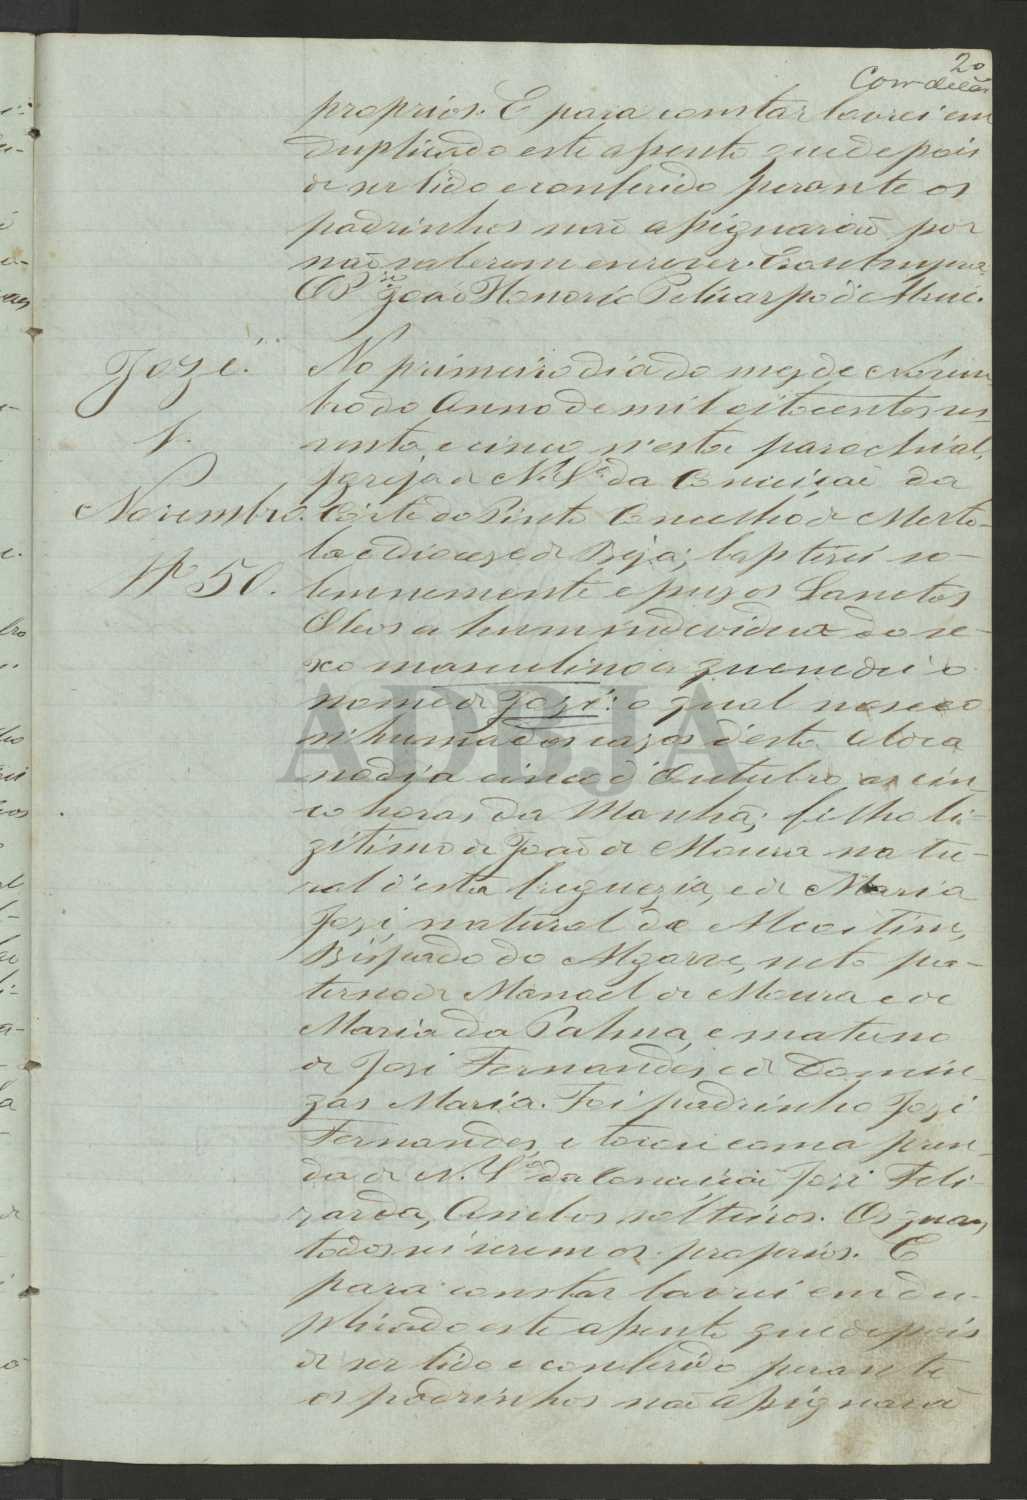 20
proprios. E para constar lavrei em
duplicado este assento que depois
de ser lido e conferido perante os
padrinhos não assignarão por
não saberem escrever. Era ut supra.
O P.e João Honorio Policarpo d'
José.
1.
Novembro.
Nº 50.
No primeiro dia do mez de Novem
bro do Anno de mil oitocentos ses
senta e cinco n'esta parochial,
Igreja de N. Sr.ª da Conceicaõ da
Côrte do Pinto Concelho de Merto-
la e dioceze de Beja; baptizei so-
lemnemente e puz os Sanctos
Oleos a hum individuo do se-
xo masculino a quem dei o
nome de José: o qual nasceo
n'huma das cazas d'esta Aldea
no dia cinco d'Outubro as cin-
co horas da Manhã; filho li-
gitimo de João de Moura natu-
ral d'esta freguezia, e de Maria
José, natural de Alcoitim,
Bispado do Algarve, neto pa-
terno de Manoel de Moura e de
Maria da Palma, e materno
de José Fernandes e de Domin-
gas Maria. Foi padrinho José
Fernandes, e tocou com a pren-
da de N. Sr.ª da Conceicaõ José Feli-
zardo, Ambos solteiros. Os quaes
todos sei serem os proprios. E
para constar lavrei em du-
plicado este assento que depois
de ser lido e conferido perante
os padrinhos não assignarão
ADBJA